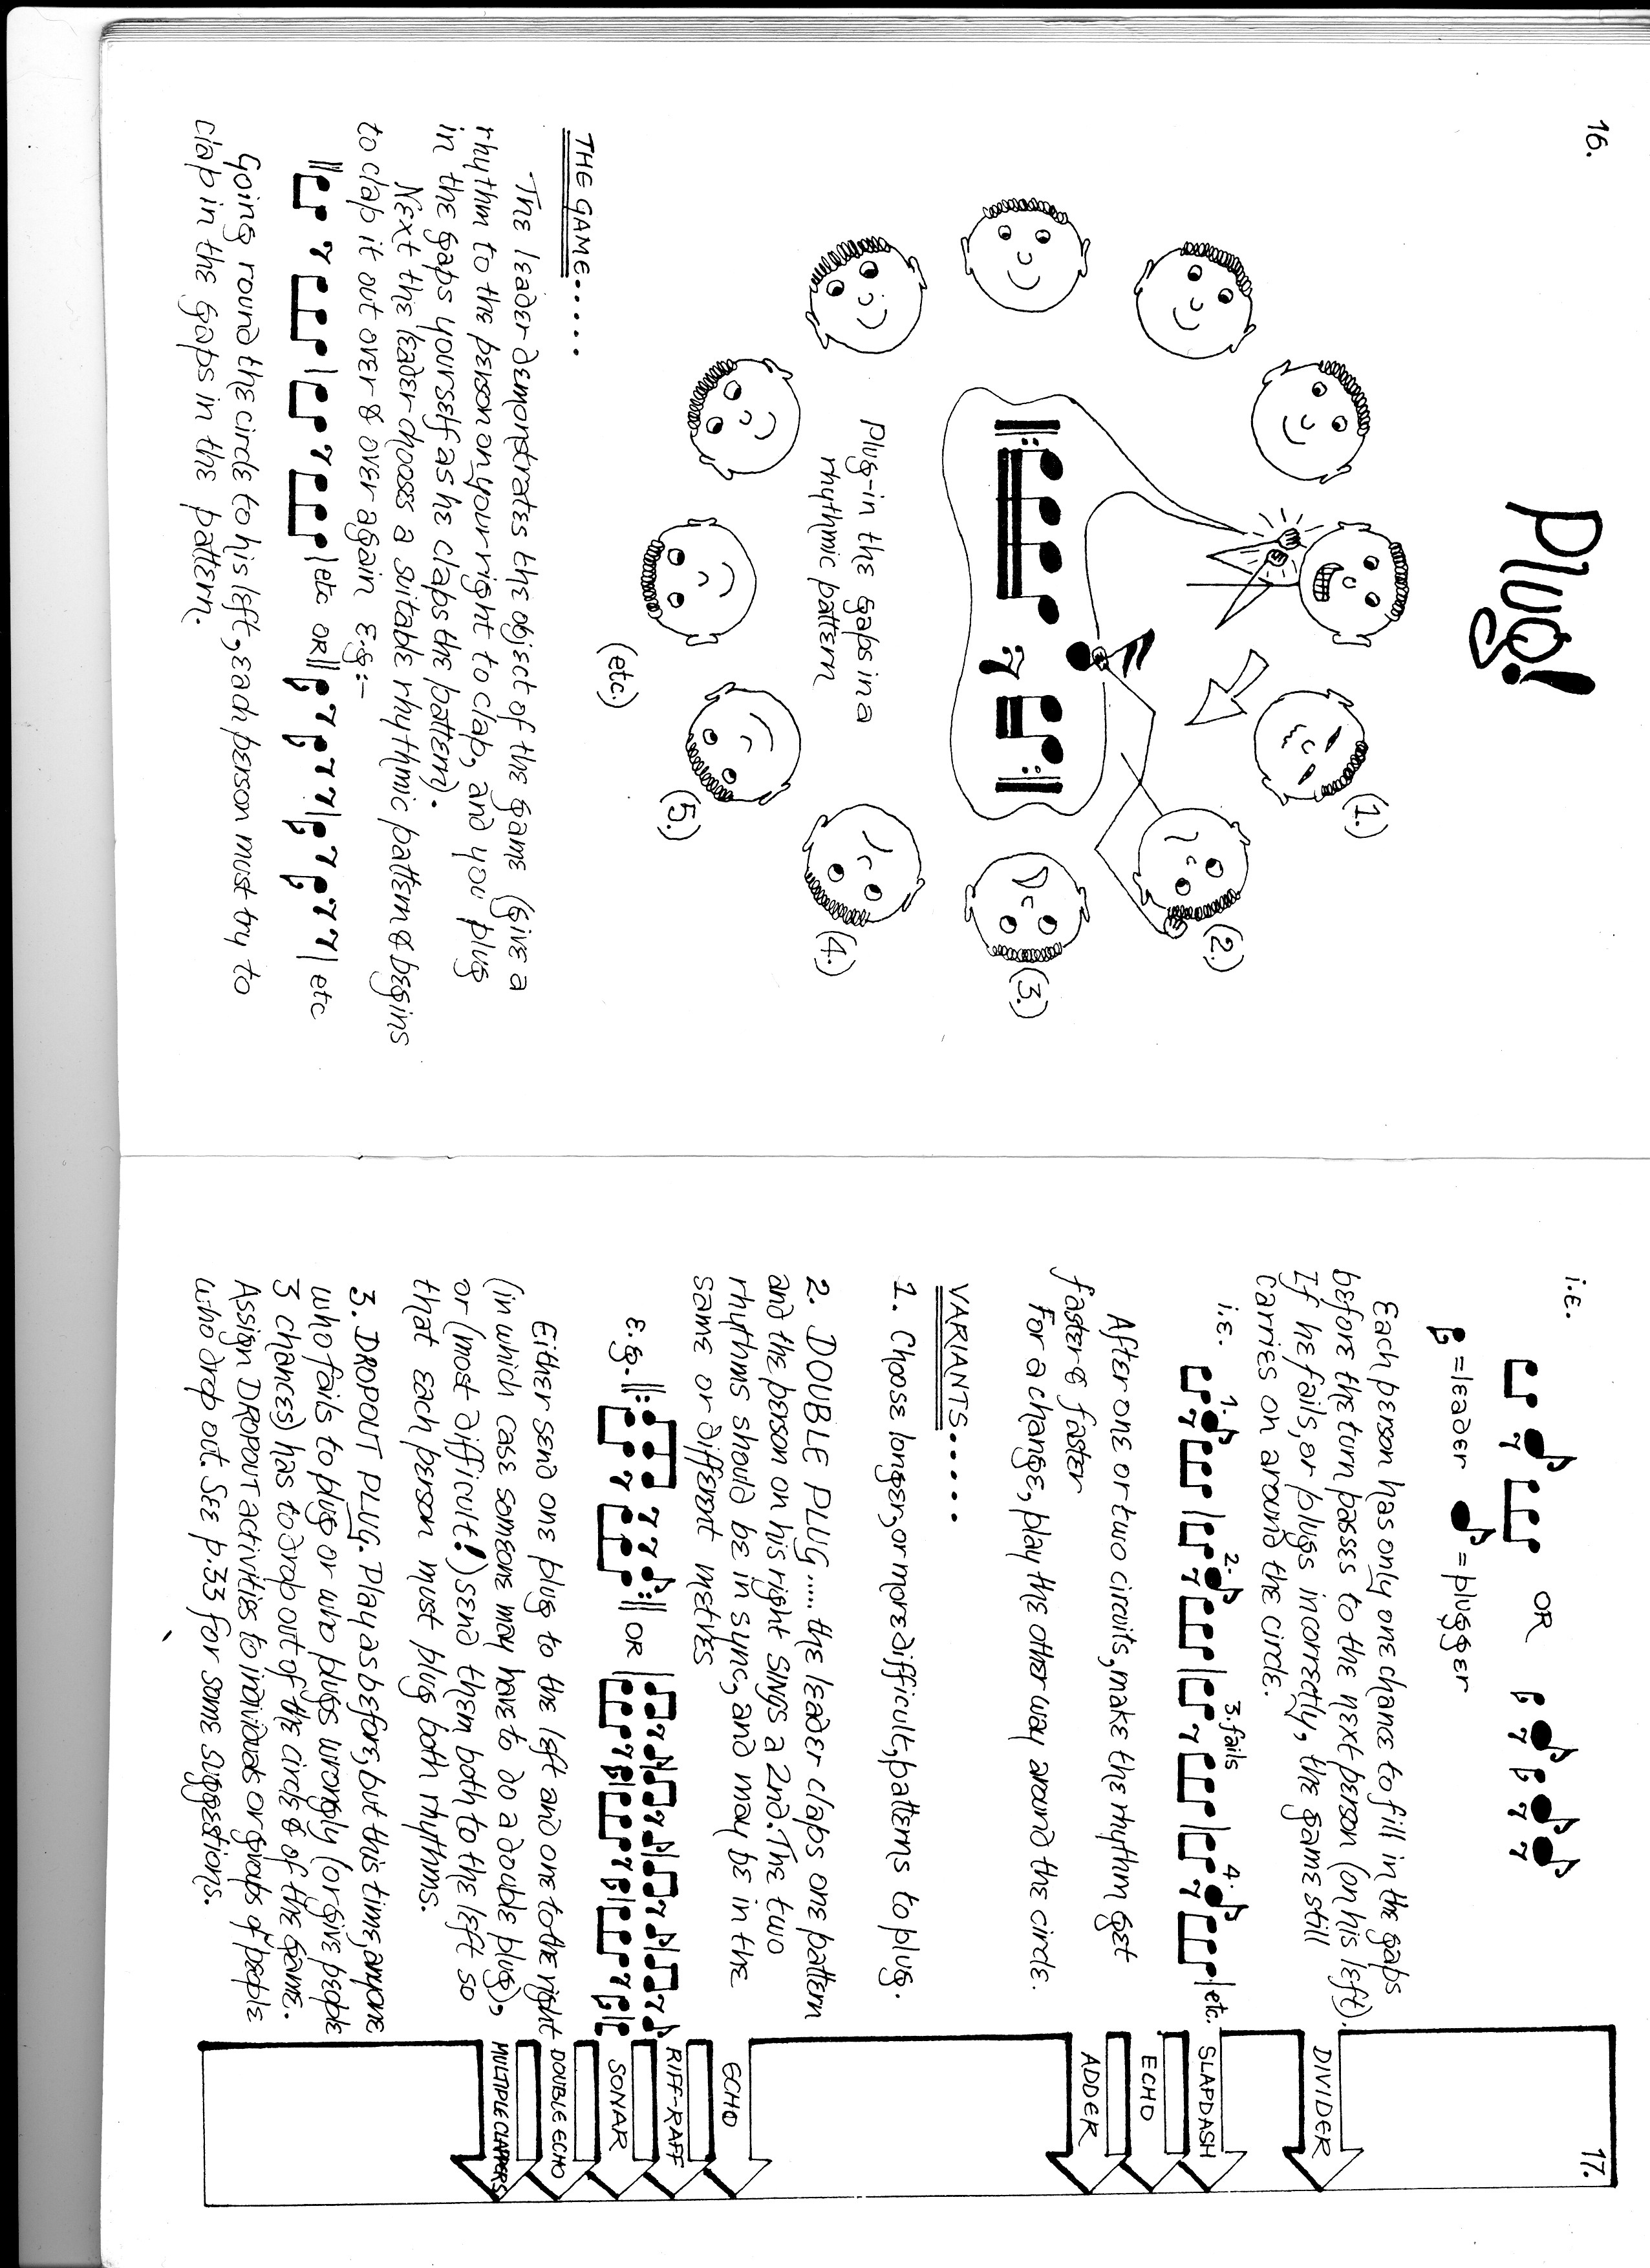 16.
Plug!
(1.)
(2.)
(3.)
(4.)
(5.)
(etc.)
Plug-in the gaps in a
rhythmic pattern
THE GAME.....
The leader demonstrates the object of the game (give a
rhythm to the person on your right to clap, and you plug
in the gaps yourself as he claps the pattern).
Next the leader chooses a suitable rhythmic pattern & begins
to clap it out over & over again E.g:-
etc OR etc
Going round the circle to his left, each person must try to
clap in the gaps in the pattern.
17.
i.e. OR
= leader = plugger
Each person has only one chance to fill in the gaps
before the turn passes to the next person (on his left).
If he fails, or plugs incorrectly, the game still
carries on around the circle.
i.e. 1. 2. 3. fails 4. etc.
After one or two circuits, make the rhythm get
faster & faster
For a change, play the other way around the circle.
VARIANTS.....
1. Choose longer, or more difficult, patterns to plug.
2. DOUBLE PLUG..... the leader claps one pattern
and the person on his right SINGS a 2nd. The two
rhythms should be in sync, and may be in the
same or different metres
E.g. OR
Either send one plug to the left and one to the right
(in which case someone may have to do a double plug),
or (most difficult!) send them both to the left so
that each person must plug both rhythms.
3. DROPOUT PLUG. Play as before, but this time, anyone
who fails to plug or who plugs wrongly (or give people
3 chances) has to drop out of the circle & of the game.
Assign DROPOUT activities to individuals or groups of people
who drop out. See p.33 for some suggestions.
DIVIDER
SLAPDASH
ECHO
ADDER
ECHO
RIFF-RAFF
SONAR
DOUBLE ECHO
MULTIPLE CLAPPERS